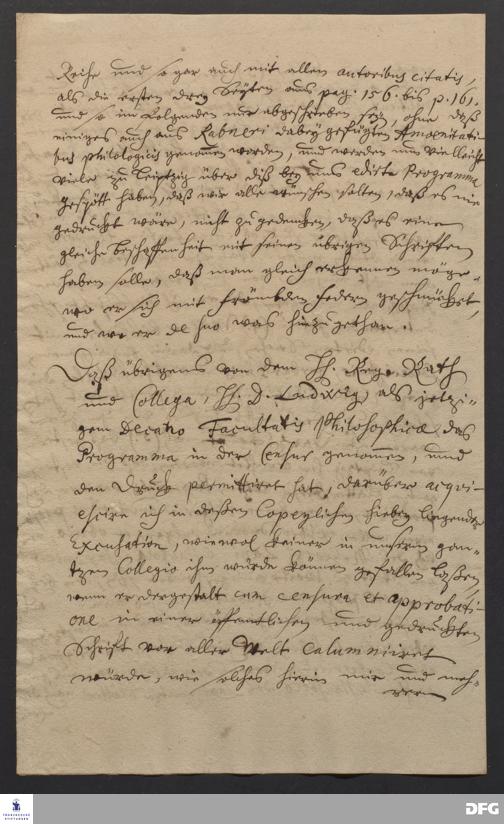 Reihe und so gar auch mit allen autoribus citatis,
als die ersten drey Seyten aus pag. 156. bis p. 161.
und so im Folgenden nur abgeschrieben seyn, ohne daß
einiges auch aus Rabneri dabey gefügten Amoenitati-
bus philologicis genommen worden, und werden nun vielleicht
viele zu Leipzig über diß bey uns edirte Programma
gespött haben, daß wir alle wünschen solten, daß es nie
gedruckt wäre, nicht zu gedencken, daß es eine
gleiche beschaffenheit mit seinen übrigen Schrifften
haben solle, daß man gleich erkennen möge,
wo er sich mit frömbden federn geschmücket,
und wo er de suo was hinzu gethan.
Daß übrigens von dem HH. Reg. Rath
und Collega, HH. D. Ludwig, als jetzi-
gem Decano Facultatis Philosophicae das
Programma in der Censur genommen, und
den Druck permittiret hat, darüber acqui-
escire ich in deßen Copeylichen hiebey liegender
Excusation, wiewol keiner in unserm gan-
tzen Collegio ihm würde können gefallen laßen,
wenn er dergestalt cum censura et approbati-
one in einer öffentlichen und gedruckten
Schrifft vor aller Welt calumniiret
würde, wie solches hierin mir und meh-
rern
FRANCKESCHE STIFTUNGEN
DFG